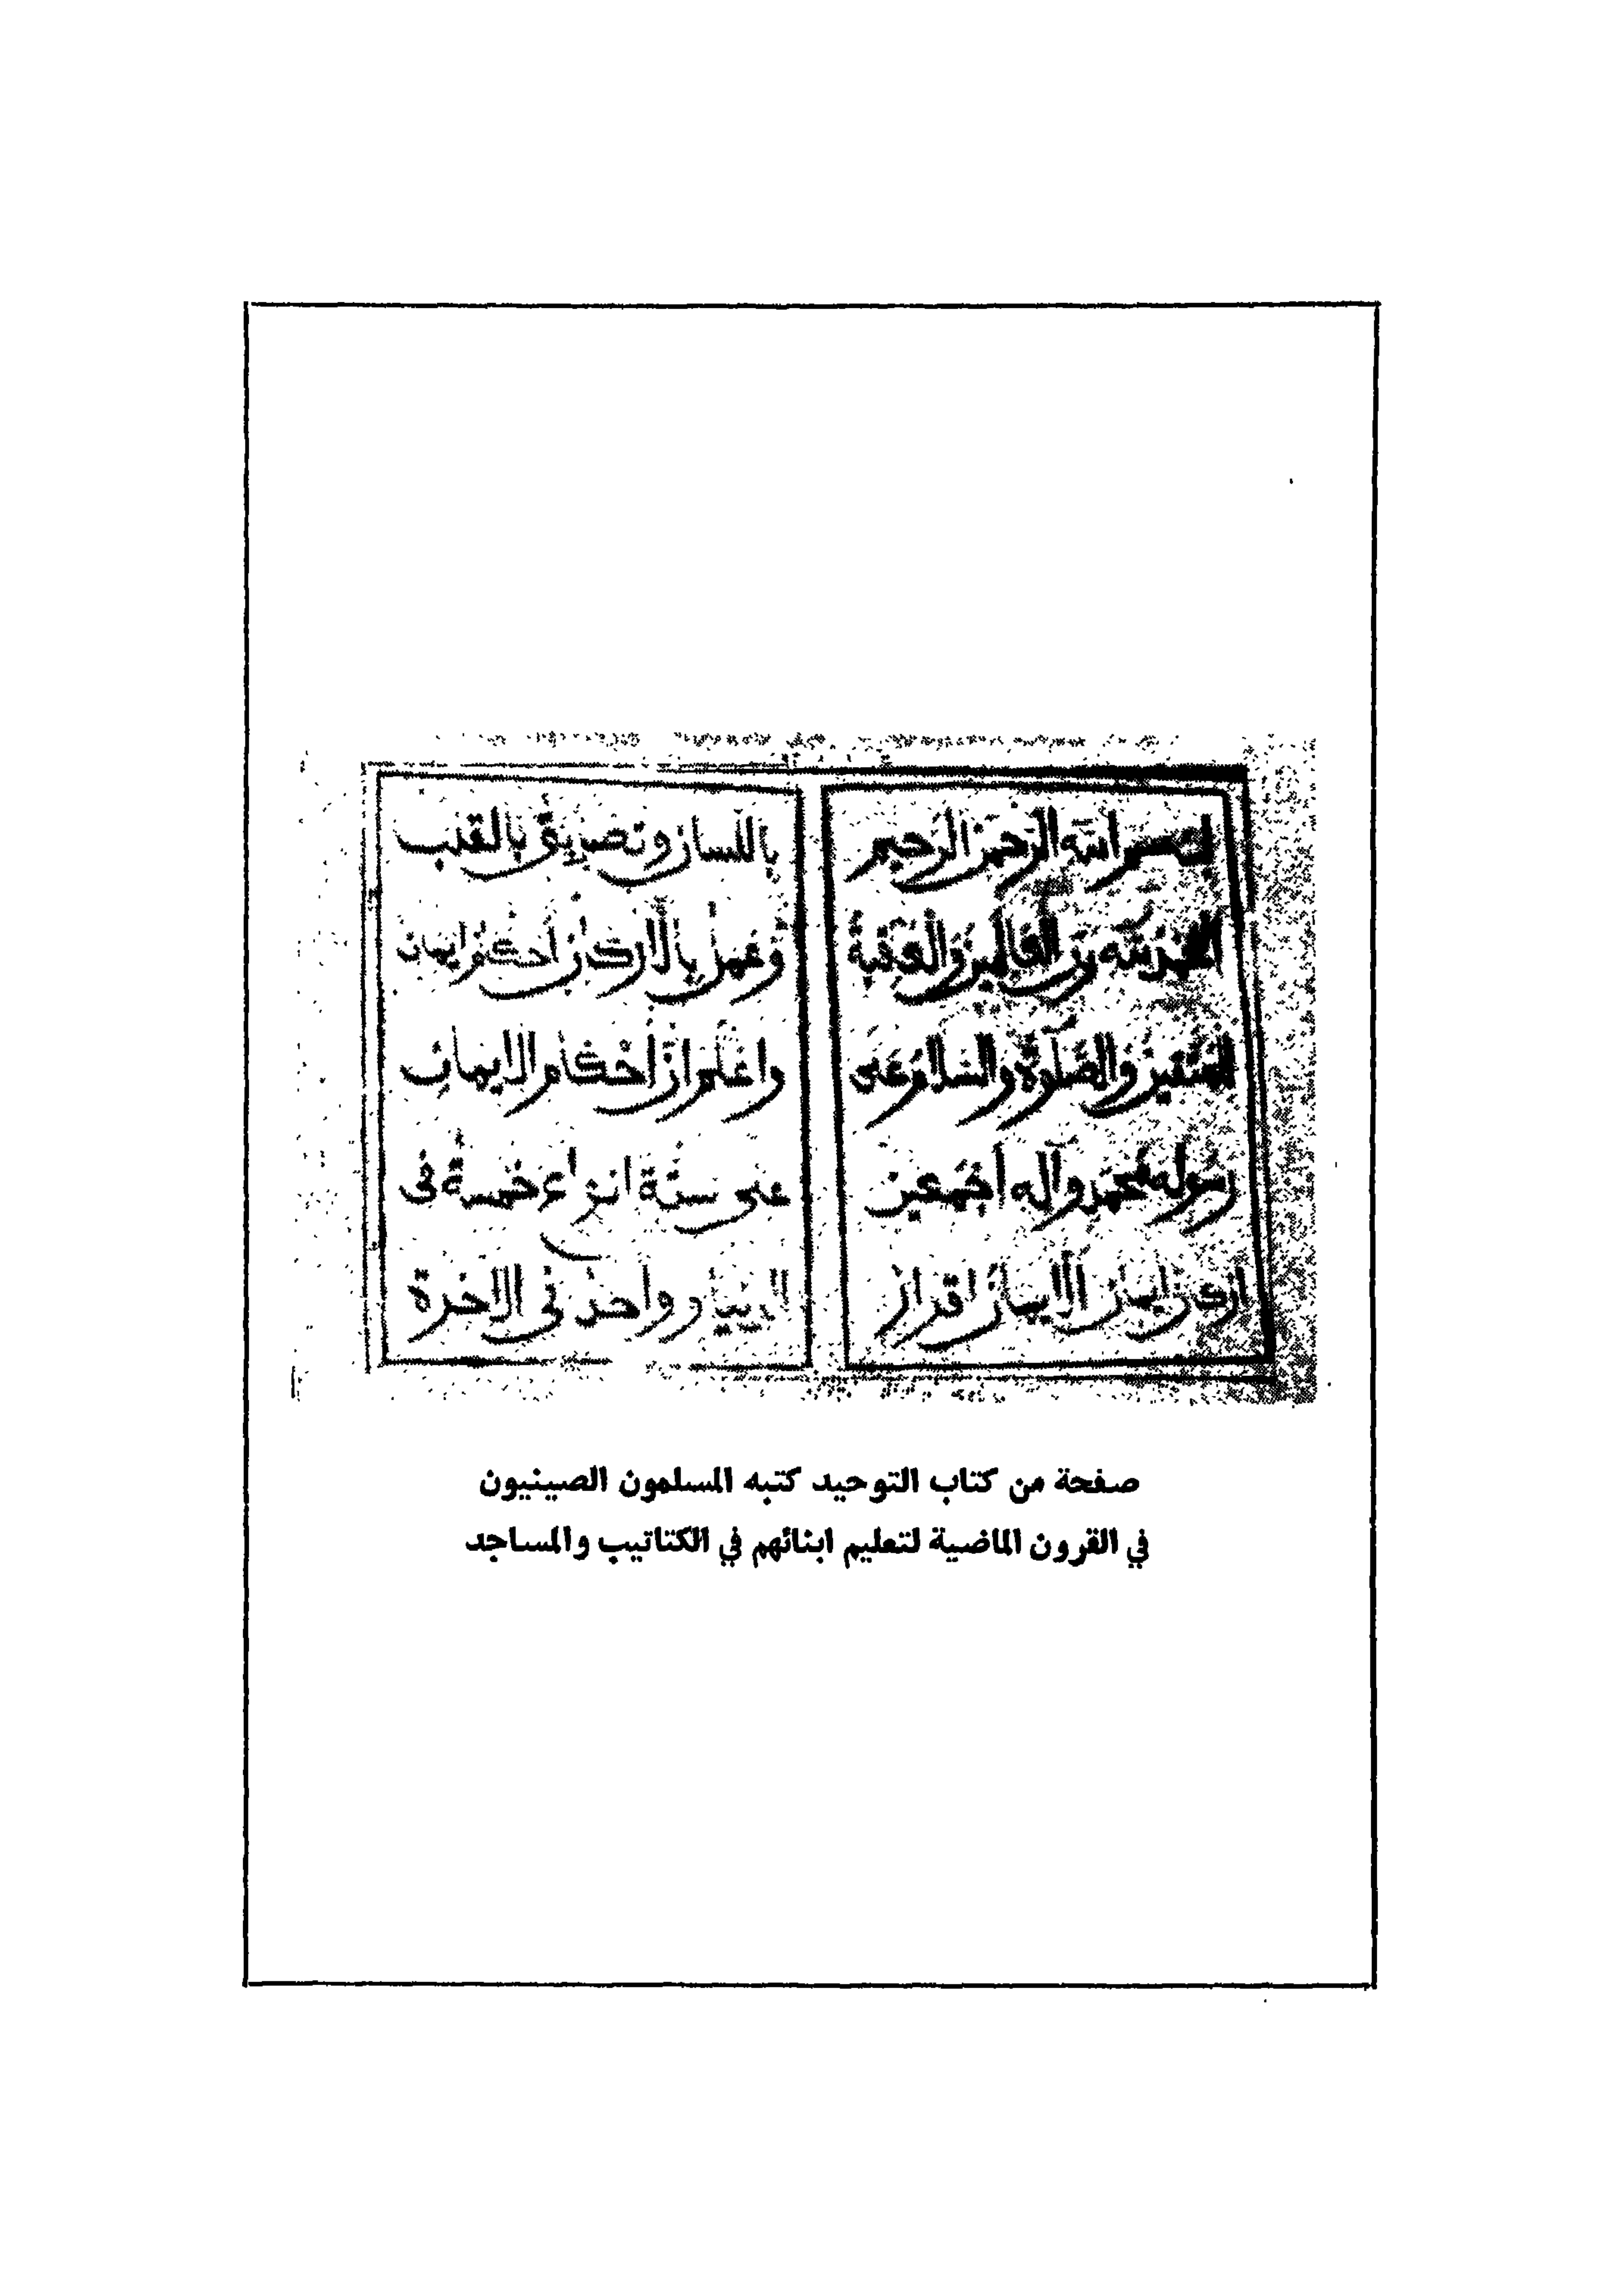 بسم الله الرحمن الرحيم
الحمد لله رب العالمين والعاقبة
للمتقين والصلوة والسلام على
رسوله محمد وآله أجمعين
اركان ايمان الايمان اقرار
باللسان وتصديق بالقلب
وعمل بالاركان أحكام ايمان
واعلم ان أحكام الايمان
على ستة انواع خمسة في
الدنيا وواحد في الاخرة
صفحة من كتاب التوحيد كتبه المسلمون الصينيون
في القرون الماضية لتعليم ابنائهم في الكتاتيب والمساجد